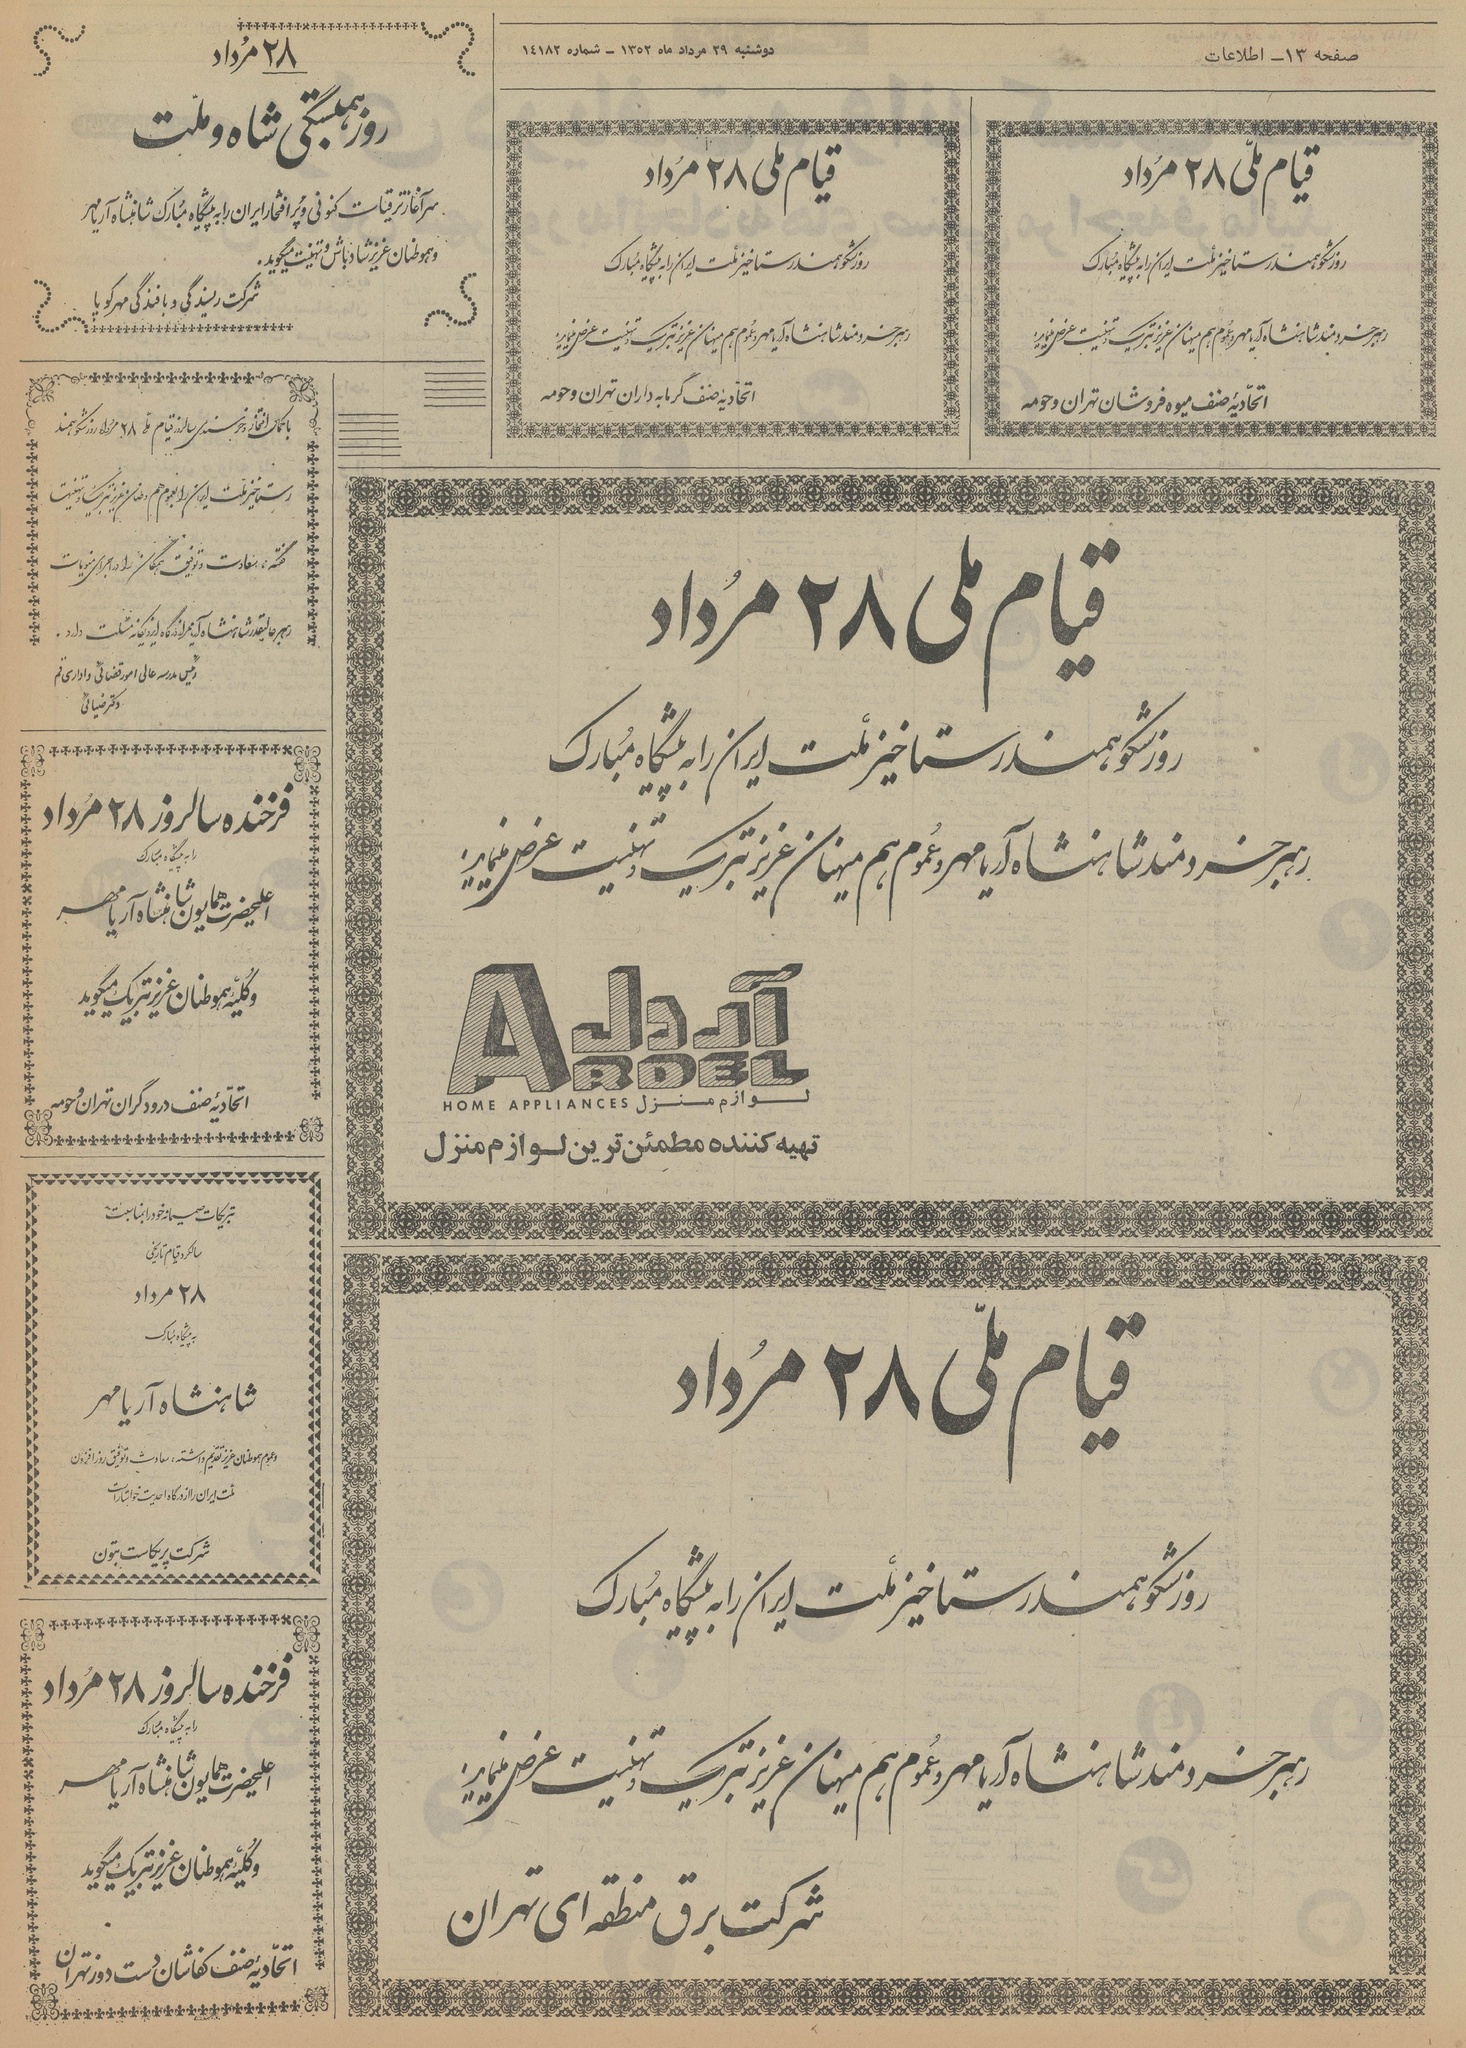 صفحه ۱۳ـ اطلاعات
دوشنبه ۲۹ مرداد ماه ۱۳۵۲ ـ شماره ۱۴۱۸۲
قیام ملّی ۲۸ مرُداد
روز شکوهمند رستاخیز ملت ایران را به پیشگاه مُبارک
رهبر خردمند شاهنشاه آریامهر و عُموم هم میهنان عزیز تبریک و تهنیت عرض مینماید:
اتحّادیهٔ صنف میوه فروشان تهران و حومه
قیام ملی ۲۸ مرُداد
روز شکوهمند رستاخیز ملت ایران را به پیشگاه مُبارک
رهبر خردمند شاهنشاه آریامهر و عُموم هم میهنان عزیز تبریک و تهنیت عرض مینماید:
اتحّادیهٔ صنف گرمابه داران تهران و حومه
۲۸ مرُداد
روز همبستگی شاه و ملّت
سرآغاز ترقیات کنونی و پُر افتخار ایران را به پیشگاه مُبارک شاهنشاه آریامهر
و هموطنان عزیز شادباش و تهنیت میگوید.
شرکت ریسندگی و بافندگی مهرکوپا
با کمال افتخار و خرسندی سالروز قیام ملّی ۲۸ مرداد روز شکوهمند
رستاخیز ملّت ایران را بعموم هم وطنان عزیز تبریک و تهنیت
گفته، سعادت و توفیق همگان را در اجرای منویات
رهبر عالیقدر شاهنشاه آریامهر از درگاه ایزد یگانه مسئلت دارد.
رئیس مدرسه عالی امور قضائی و اداری قم
دکتر ضیائی
قیام ملی ۲۸ مرُداد
روز شکوهمند رستاخیز ملّت ایران را به پیشگاه مُبارک
رهبر خردمند شاهنشاه آریامهر و عُموم هم میهنان عزیز تبریک و تهنیت عرض مینماید:
آردل
ARDEL
لوازم منزل HOME APPLIANCES
تهیه کننده مطمئن ترین لوازم منزل
فرخنده سالروز ۲۸ مرُداد
را به پیشگاه مبارک
اعلیحضرت همایون شاهنشاه آریامهر
و کلیّهٔ هموطنان عزیز تبریک میگوید
اتحّادیهٔ صنف درودگران تهران و حومه
تبریکات صمیمانه خود را بمناسبت
سالگرد قیام تاریخی
۲۸ مرداد
به پیشگاه مبارک
شاهنشاه آریامهر
و عموم هموطنان عزیز تقدیم داشته، سعادت و توفیق روزافزون
ملت ایران را از درگاه احدیت خواستار است
شرکت پریکاست بتون
قیام ملّی ۲۸ مرُداد
روز شکوهمند رستاخیز ملّت ایران را به پیشگاه مُبارک
رهبر خردمند شاهنشاه آریامهر و عُموم هم میهنان عزیز تبریک و تهنیت عرض مینماید:
شرکت برق منطقه ای تهران
فرخنده سالروز ۲۸ مرُداد
را به پیشگاه مبارک
اعلیحضرت همایون شاهنشاه آریامهر
و کلیّهٔ هموطنان عزیز تبریک میگوید
اتحّادیهٔ صنف کفاشان دست دوز تهران